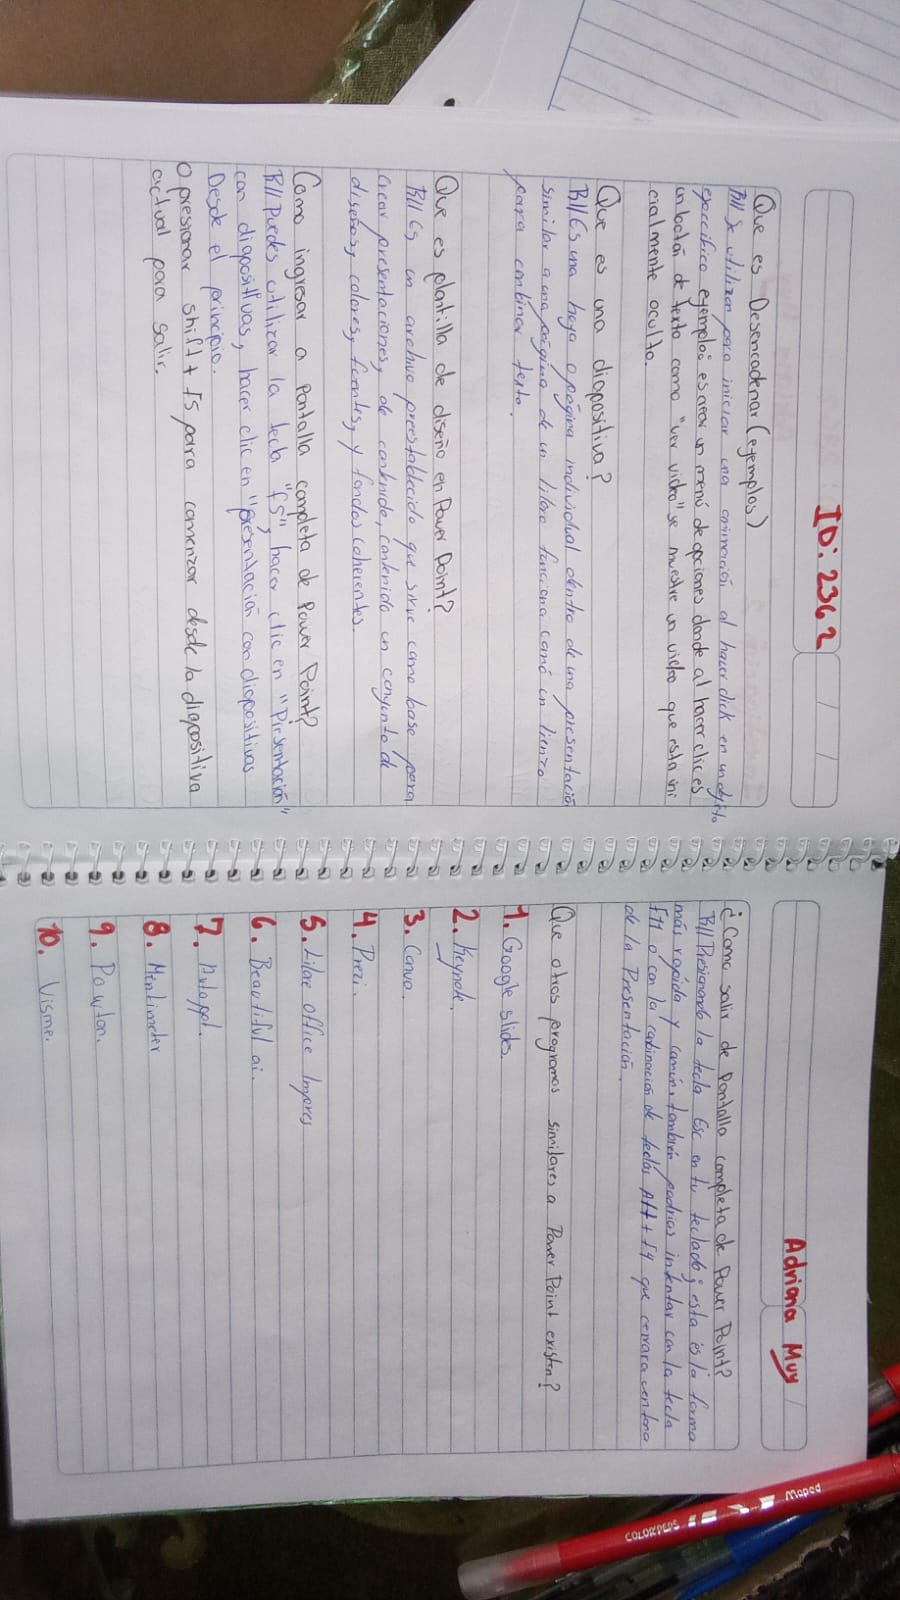 ID: 2362
Que es Desencadenar (ejemplos)
R// Se utilizan para iniciar una animación al hacer click en un objeto
especifico ejemplo: es crear un menú de opciones donde al hacer clic es
un botón de texto como "ver video" se muestre un video que esta ini
cialmente oculto.
Que es una diapositiva?
R// Es una hoja o página individual dentro de una presentación
similar a una página de un libro funciona comó un lienzo
para contener texto.
Que es plantilla de diseño en Power Point?
R// Es un archivo preestablecido que sirve como base para
crear presentaciones, de contenido, contenida un conjunto de
diseños, colores, fuentes, y fondos coherentes.
Como ingresar a Pantalla completa de Power Point?
R// Puedes utilizar la tecla "f5", hacer clic en "Presentación"
con diapositivas, hacer clic en "presentación con diapositivas
Desde el principio.
O presionar shift + f5 para comenzar desde la diapositiva
actual para salir.
Adriana Muy
¿Como salir de Pantalla completa de Power Point?
R// Presionando la tecla Esc en tu teclado; esta es la forma
más rapida y común, también podrias intentar con la tecla
F11 o con la cobinación de teclas Alt + f4 que cerrara ventana
de la Presentación.
Que otros programas similares a Power Point existen?
1. Google slides.
2. Keynote.
3. Canva.
4. Prezi.
5. Libre office Impres
6. Beautiful ai.
7.
8. Mentimeter
9. Powton.
10. Visme.
COLORPEPS Maped